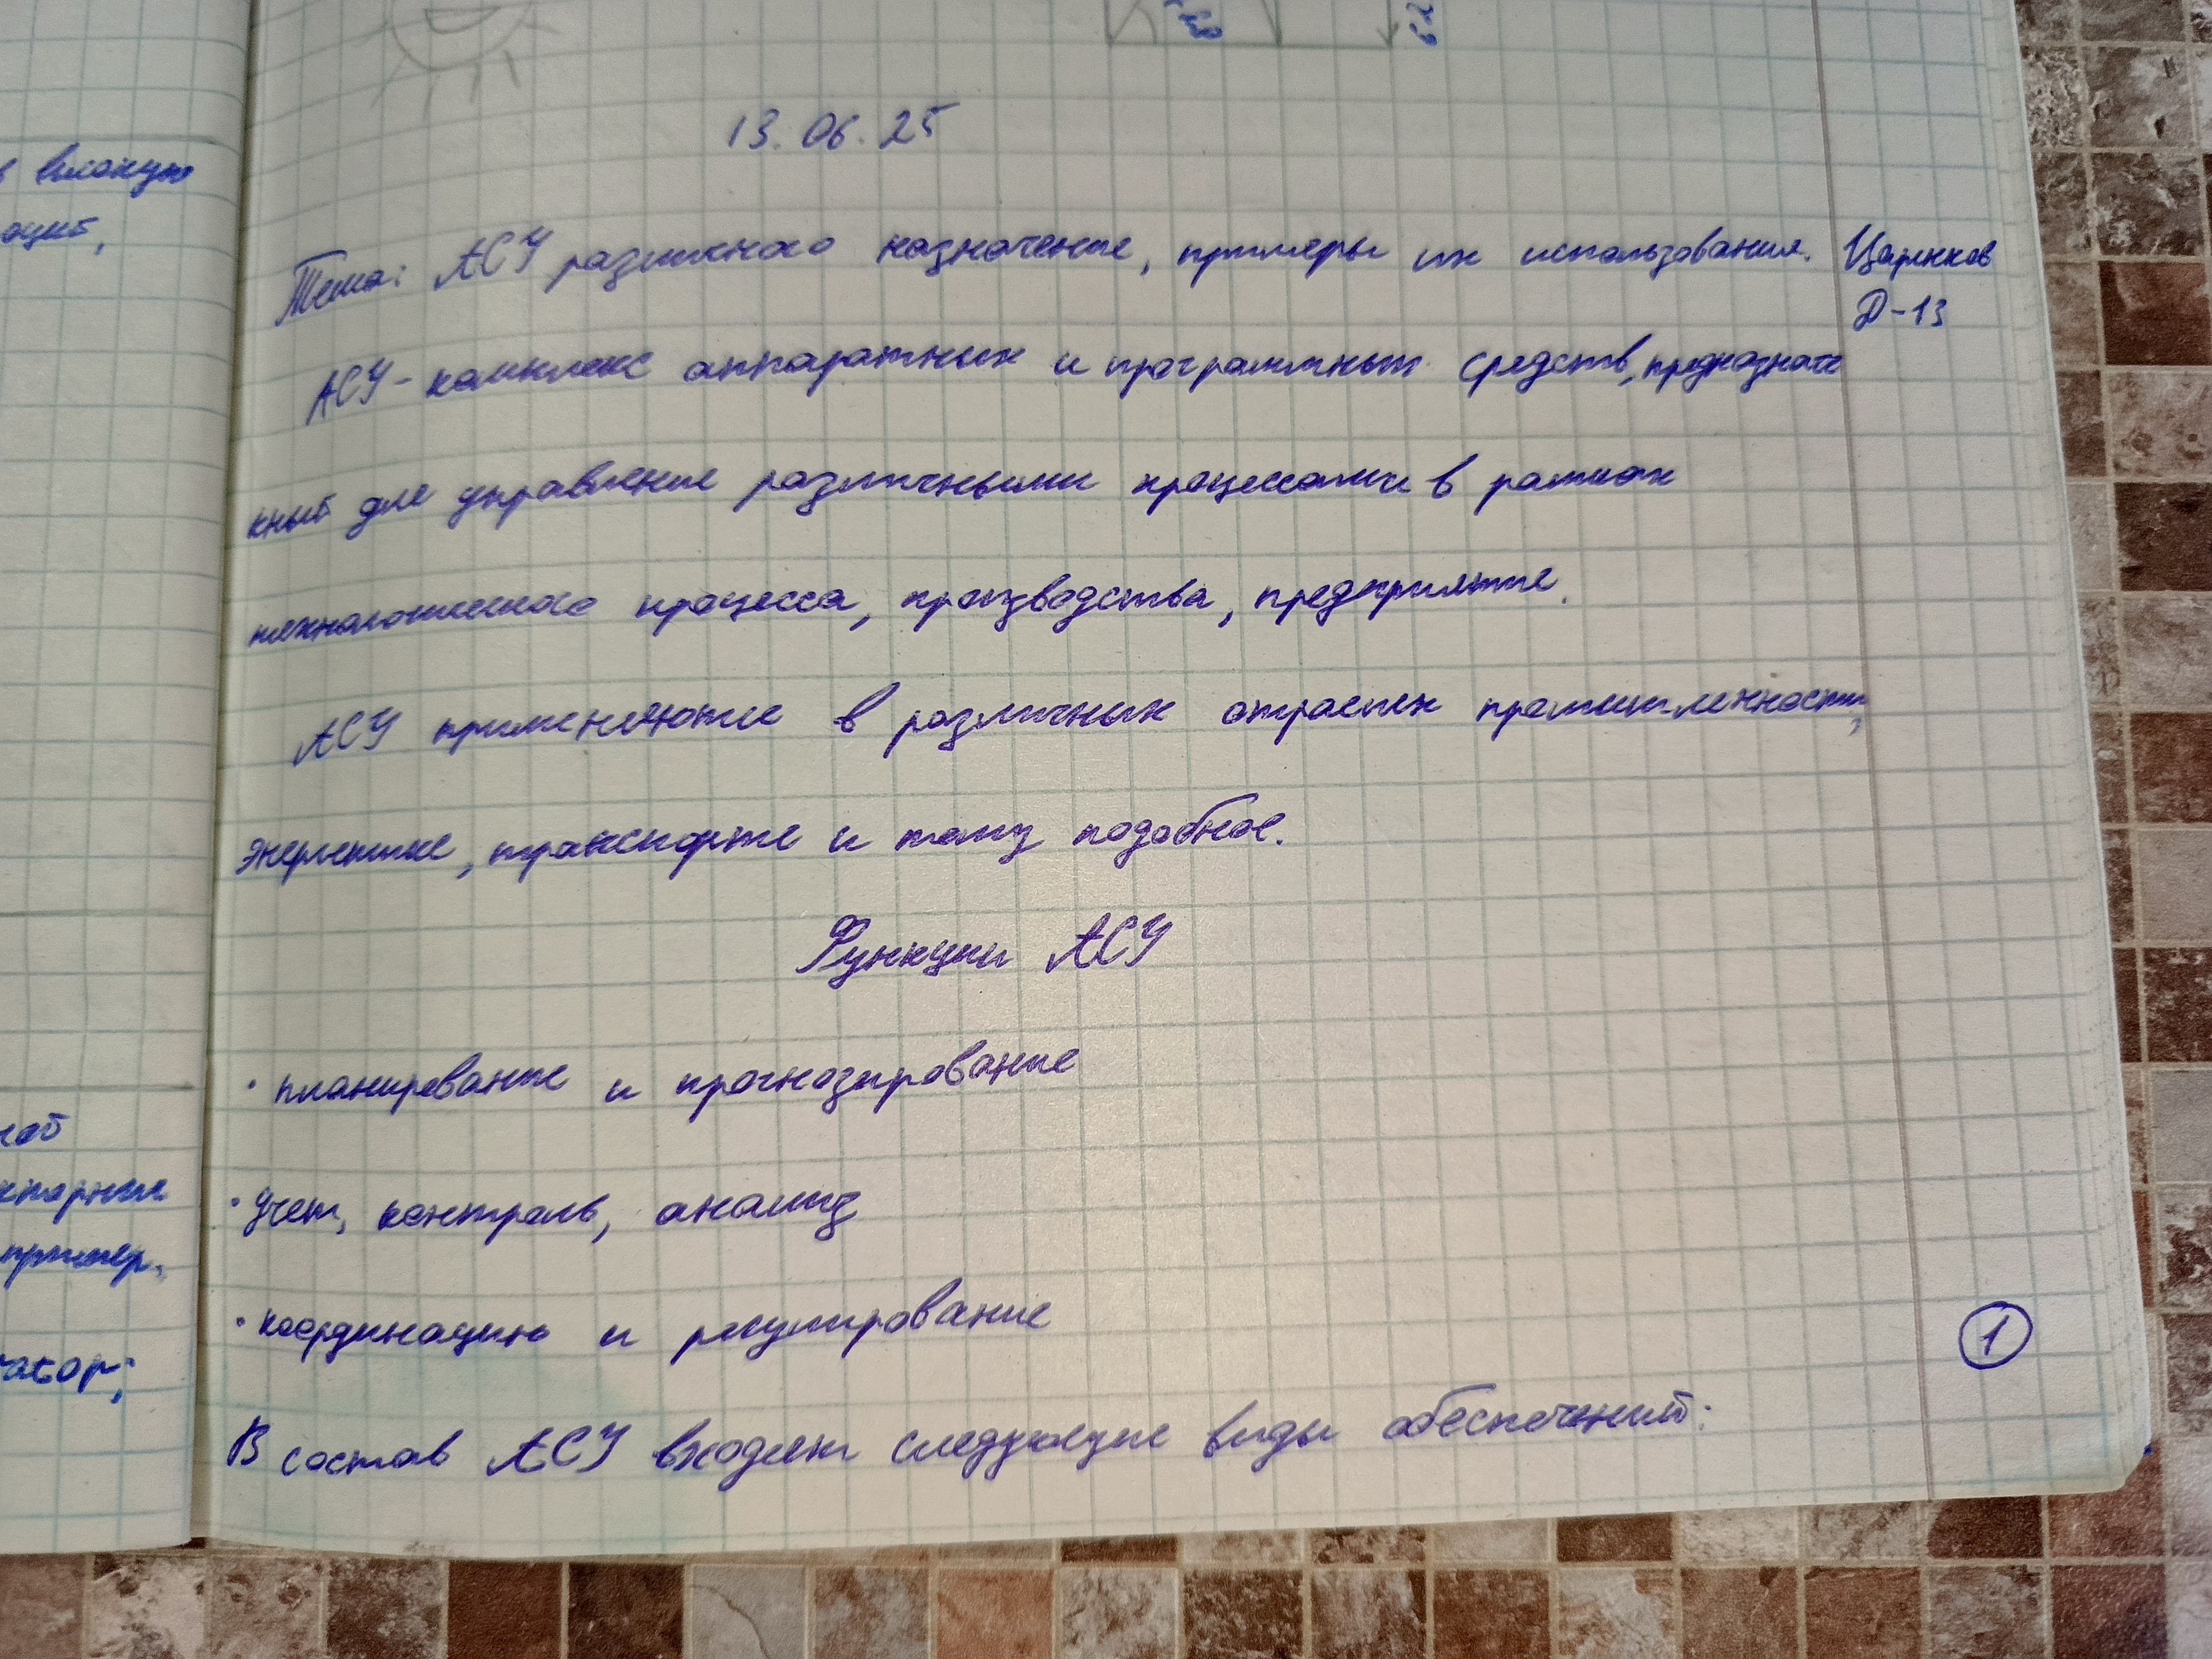 13.06.25
Тема: АСУ различного назначение, примеры их использования. Царьков
Д-13
АСУ - комплекс аппаратных и программных средств, предназначе
нный для управление различными процессами в рамках
технологического процесса, производства, предприятие.
АСУ применяются в различных отраслях промышленности,
энергетике, транспорте и тому подобное.
Функции АСУ
· планирование и прогнозирование
· Учет, контроль, анализ
· координацию и регулирование
1
В состав АСУ входят следующие виды обеспечений: